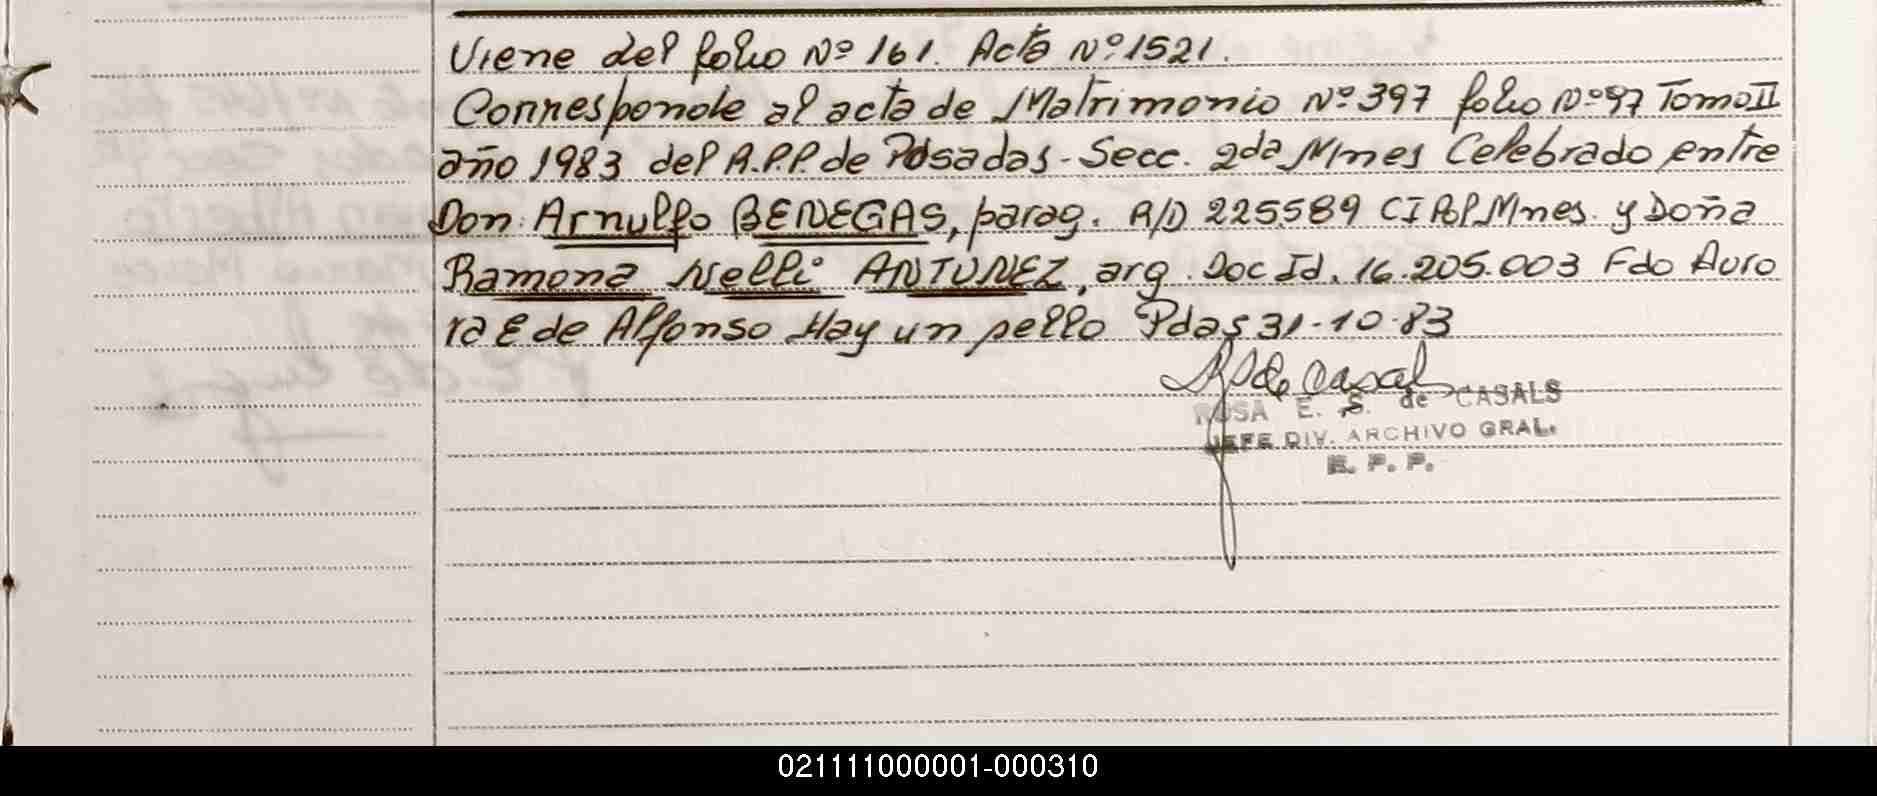 Viene del folio Nº 161. Acta Nº 1521.
Corresponde al acta de Matrimonio Nº 397 folio Nº 97 Tomo II
año 1983 del R.P.P. de Posadas - Secc. 2da Mnes Celebrado entre
Don: Arnulfo BENEGAS, parag. R/D 225.589 CI Pol Mnes. y Doña
Ramona Nelli ANTUNEZ, arg. Doc Id. 16.205.003 Fdo Auro
ra E de Alfonso Hay un sello Pdas 31-10-83
ROSA E. S. de CASALS
JEFE DIV. ARCHIVO GRAL.
R. P. P.
021111000001-000310